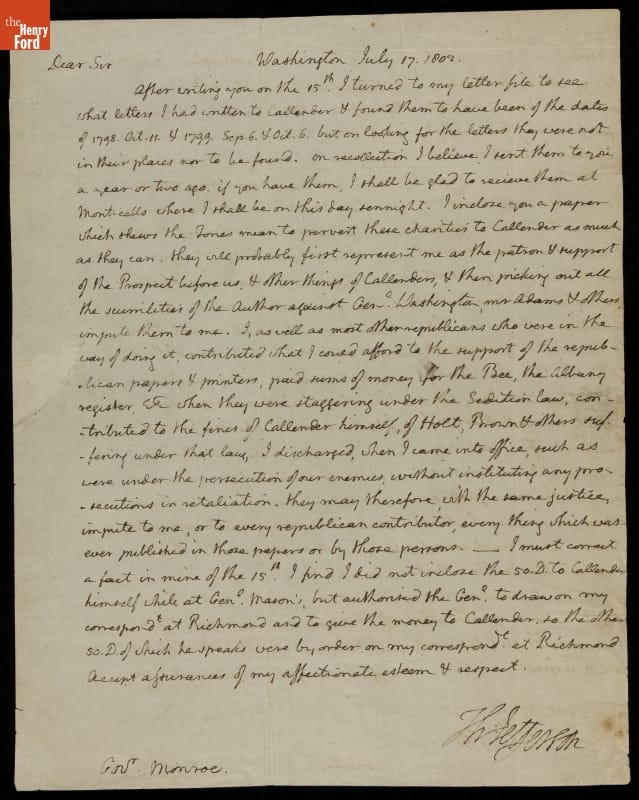 the
Henry
Ford
Washington July 17. 1802.
Dear Sir
After writing you on the 15th. I turned to my letter file to see
what letters I had written to Callender & found them to have been of the dates
of 1798. Oct. 11. & 1799. Sep. 6. & Oct. 6. but on looking for the letters they were not
in their places nor to be found. on recollection I believe I sent them to you
a year or two ago. if you have them, I shall be glad to recieve them at
Monticello where I shall be on this day sennight. I inclose you a paper
which shews the Tories mean to pervert these charities to Callender as much
as they can. they will probably first represent me as the patron & support
of the Prospect before us, & other things of Callenders, & then picking out all
the scurrilities of the Author against Genl. Washington, mr Adams & others
impute them to me. I, as well as most other republicans who were in the
way of doing it, contributed what I could afford to the support of the repub-
-lican papers & printers, paid sums of money for the Bee, the Albany
register, &c when they were staggering under the Sedition law, con-
-tributed to the fines of Callender himself, of Holt, Brown & others suf-
-fering under that law. I discharged, when I came into office, such as
were under the persecution of our enemies, without instituting any pro-
-secutions in retaliation. they may therefore with the same justice,
impute to me, or to every republican contributor, every thing which was
ever published in those papers or by those persons. — I must correct
a fact in mine of the 15th. I find I did not inclose the 50. D. to Callender
himself while at Genl. Mason's, but authorised the Genl. to draw on my
correspondt. at Richmond and to give the money to Callender. so the other
50. D. of which he speaks were by order on my correspondt. at Richmond.
Accept assurances of my affectionate esteem & respect.
Th: Jefferson
Govr. Monroe.